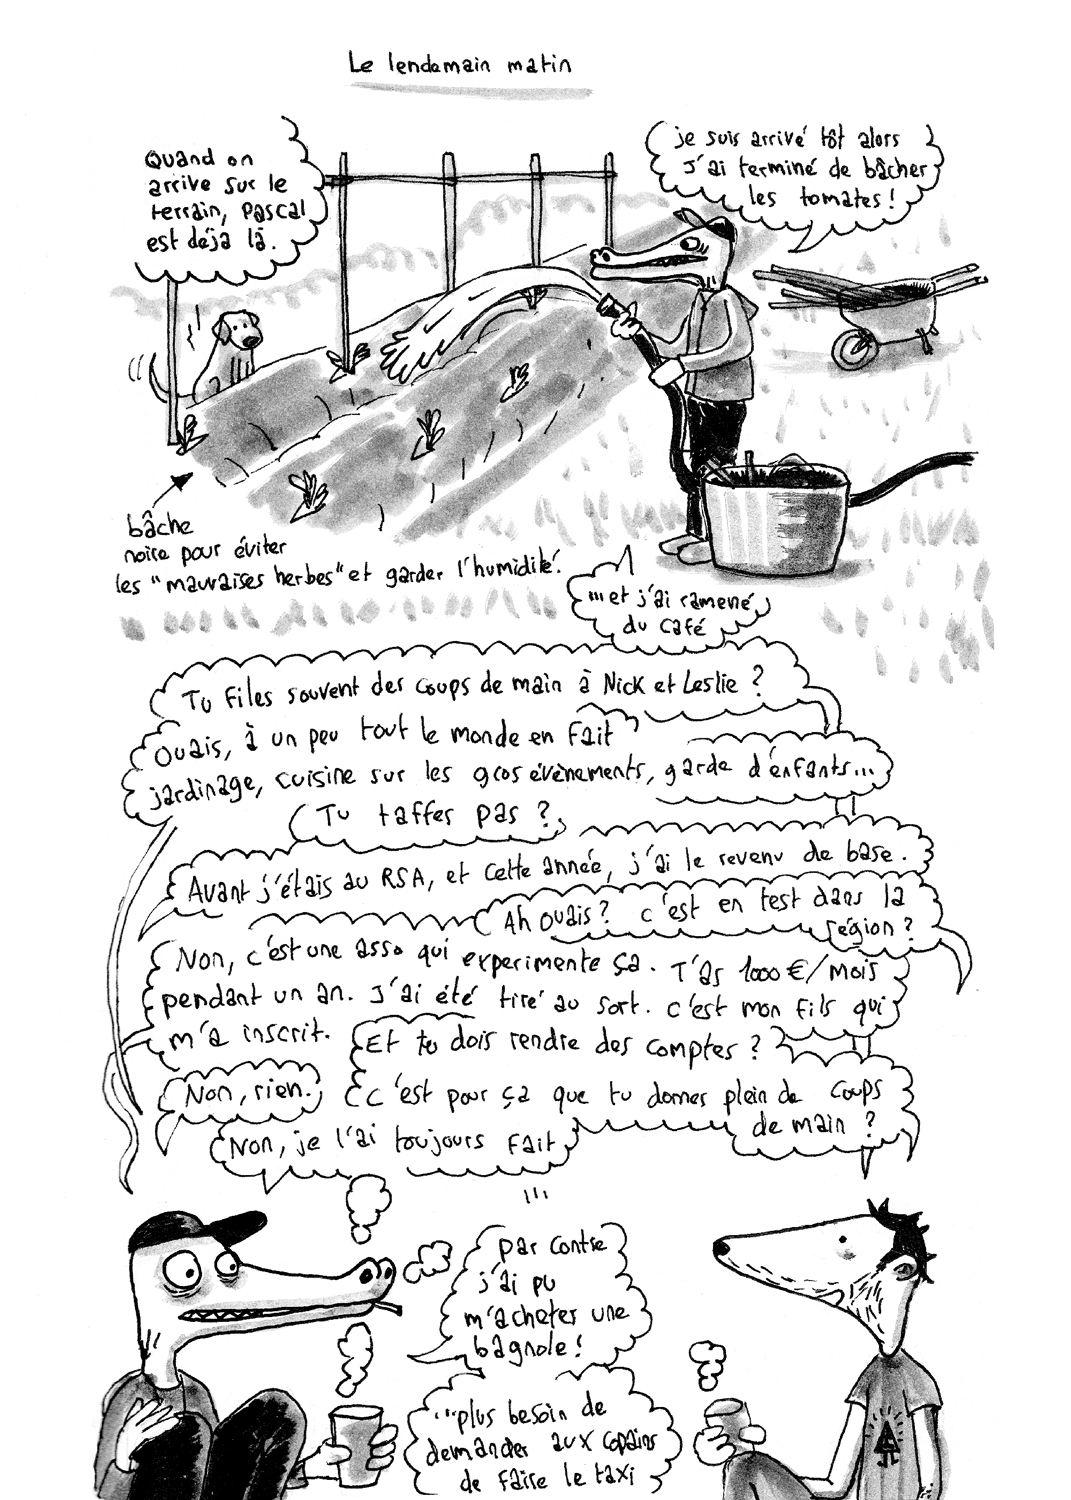 Le lendemain matin
Quand on
arrive sur le
terrain, Pascal
est déjà là.
je suis arrivé tôt alors
J'ai terminé de bâcher
les tomates !
bâche
noire pour éviter
les "mauvaises herbes" et garder l'humidité.
... et j'ai ramené
du café
Tu files souvent des coups de main à Nick et Leslie ?
Ouais, à un peu tout le monde en fait
jardinage, cuisine sur les gros évènements, garde d'enfants...
Tu taffes pas ?
Avant j'étais au RSA, et cette année, j'ai le revenu de base.
Ah ouais ? c'est en test dans la
région ?
Non, c'est une asso qui experimente ça. T'as 1000 €/mois
pendant un an. J'ai été tiré au sort. c'est mon fils qui
m'a inscrit.
Et tu dois rendre des comptes ?
Non, rien.
c'est pour ça que tu donnes plein de coups
de main ?
Non, je l'ai toujours fait
...
par contre
j'ai pu
m'acheter une
bagnole !
...plus besoin de
demander aux copains
de faire le taxi